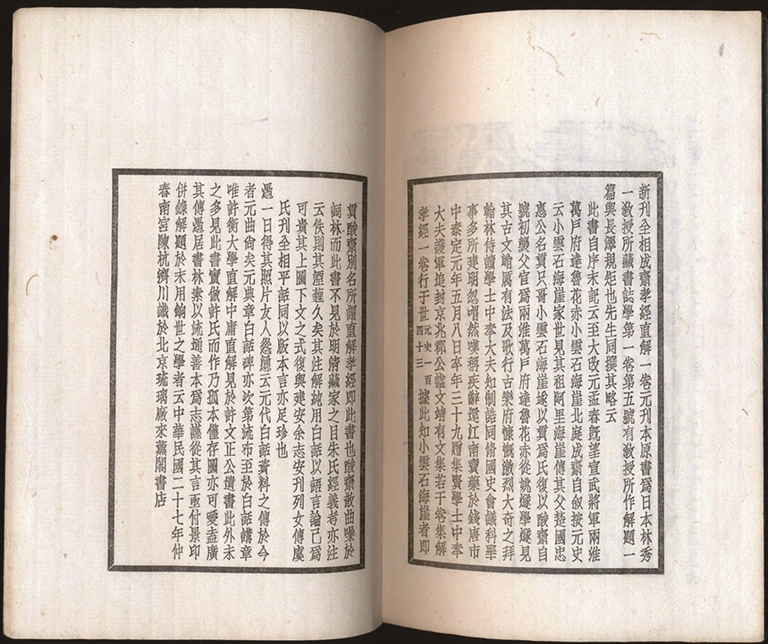 新刊全相成齋孝經直解一卷元刊本原書爲日本林秀
一教授所藏書誌學第一卷第五號有教授所作解題一
篇與長澤規矩也先生同撰其略云
此書自序末記云至大改元孟春旣望宣武將軍兩淮
萬戸府達魯花赤小雲石海崖北庭成齋自敘按元史
云小雲石海崖家世見其祖阿里海崖傳其父楚國忠
惠公名貫只哥小雲石海崖遂以貫爲氏復以酸齋自
號初襲父官爲兩淮萬戸府達魯花赤從姚燧學燧見
其古文峭厲有法及歌行古樂府慷慨激烈大奇之拜
翰林侍讀學士中奉大夫知制誥同脩國史會議科舉
事多所建明忽喟然嘆稱疾辭還江南賣藥於錢唐市
中泰定元年五月八日卒年三十九贈集賢學士中奉
大夫護軍追封京兆郡公諡文靖有文集若干卷直解
孝經一卷行于世元史一百四十三據此知小雲石海崖者卽
貫酸齋別名所謂直解孝經卽此書也酸齋散曲噪於
詞林而此書不見於明清藏家之目朱氏經義考亦注
云佚則其湮韞久矣其注解純用白話以語言論己爲
可貴其上圖下文之式復與建安余志安刊列女傳虞
氏刊全相平話同以版本言亦足珍也
遇一日得其照片友人慫慂云元代白話資料之傳於今
者元曲尙矣元典章白話碑亦次第流布至於白話講章
唯許衡大學直解中庸直解見於許文正公遺書此外未
之多見此書實倣許氏而作乃孤本僅存圖亦可愛盍廣
其傳遇居書林素以流通善本爲志謹從其言亟付景印
併錄解題於末用餉世之學者云中華民國二十七年仲
春南宮陳杭濟川識於北京琉璃廠來薰閣書店